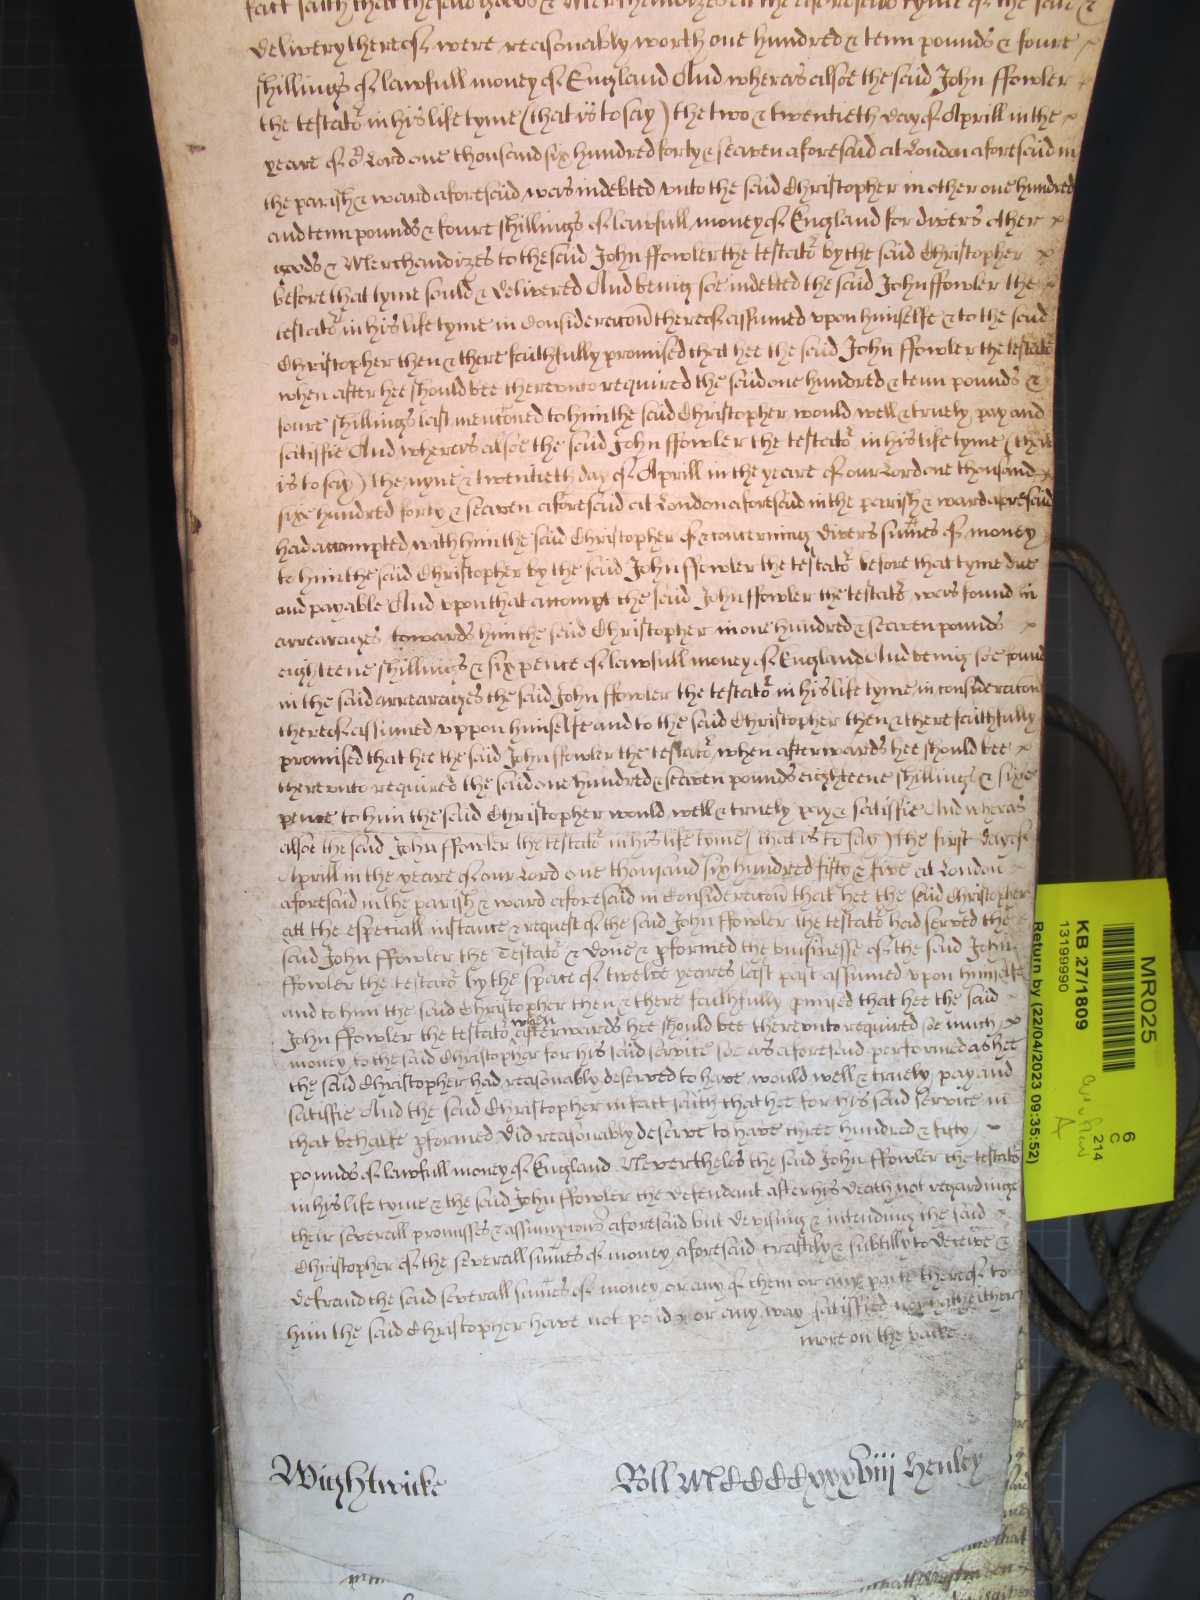 fact saith that the said goods & Merchandizes att the aforesaid tyme of the sale &
delivery thereof were reasonably worth one hundred & tenn pounds & foure
shillings of lawfull money of England And whereas alsoe the said John ffowler
the testator in his life tyme (that is to say) the two & twentieth day of Aprill in the
yeare of or Lord one thousand six hundred forty & seaven aforesaid at London aforesaid in
the parish & ward aforesaid was indebted vnto the said Christopher in other one hundred
and tenn pounds & foure shillings of lawfull money of England for divers other
goods & Merchandizes to the said John ffowler the testator by the said Christopher
before that tyme sould & delivered And being soe indebted the said John ffowler the
testator in his life tyme in Consideracon thereof assumed vpon himselfe & to the said
Christopher then & there faithfully promised that hee the said John ffowler the testator
when after hee should bee therevnto required the said one hundred & tenn pounds &
foure shillings last menconed to him the said Christopher would well & truely pay and
satisfie And whereas alsoe the said John ffowler the testator in his life tyme (that
is to say) the nyne & twentieth day of Aprill in the yeare of our Lord one thousand
sixe hundred forty & seaven aforesaid at London aforesaid in the parish & ward aforesaid
had accompted with him the said Christopher of & concerning divers sumes of money
to him the said Christopher by the said John ffowler the testator before that tyme due
and payable And vpon that accompt the said John ffowler the testator was found in
arrearages towards him the said Christopher in one hundred & seaven pounds
eighteene shillings & six pence of lawfull money of England And being soe found
in the said arrearages the said John ffowler the testator in his life tyme in consideracon
thereof assumed vppon himselfe and to the said Christopher then & there faithfully
promised that hee the said John ffowler the testator when afterwards hee should bee
therevnto required the said one hundred & seaven pounds eighteene shillings & sixe
pence to him the said Christopher would well & truely pay & satisfie And whereas
alsoe the said John ffowler the testator in his life tyme (that is to say) the first day of
Aprill in the yeare of our Lord one thousand six hundred fifty & five at London
aforesaid in the parish & ward aforesaid in Consideracon that hee the said Christopher
att the especiall instance & request of the said John ffowler the testator had served the
said John ffowler the Testator & done & pformed the buisinesse of the said John
ffowler the testator by the space of twelve yeares last past assumed vpon himselfe
and to him the said Christopher then & there faithfully pmised that hee the said
John ffowler the testator when afterwards hee should bee therevnto required soe much
money to the said Christopher for his said service soe as aforesaid performed as hee
the said Christopher had reasonably deserved to have would well & truely pay and
satisfie And the said Christopher in fact saith that hee for his said service in
that behalfe pformed did reasonably deserve to have three hundred & fifty
pounds of lawfull money of England Nevertheles the said John ffowler the testator
in his life tyme & the said John ffowler the defendant after his death not regardinge
their severall promisses & assumpcons aforesaid but devising & intending the said
Christopher of the severall sumes of money aforesaid craftily & subtilly to deceive &
defraud the said severall sumes of money or any of them or any parte thereof to
him the said Christopher have not paid or any way satisfied nor hath either
more on the backe
Wightwicke
Roll MDCCCCxxxviij Henley
MR025
KB 27/1809
13199990
Return by (22/04/2023 09:35:52)
6
C
214